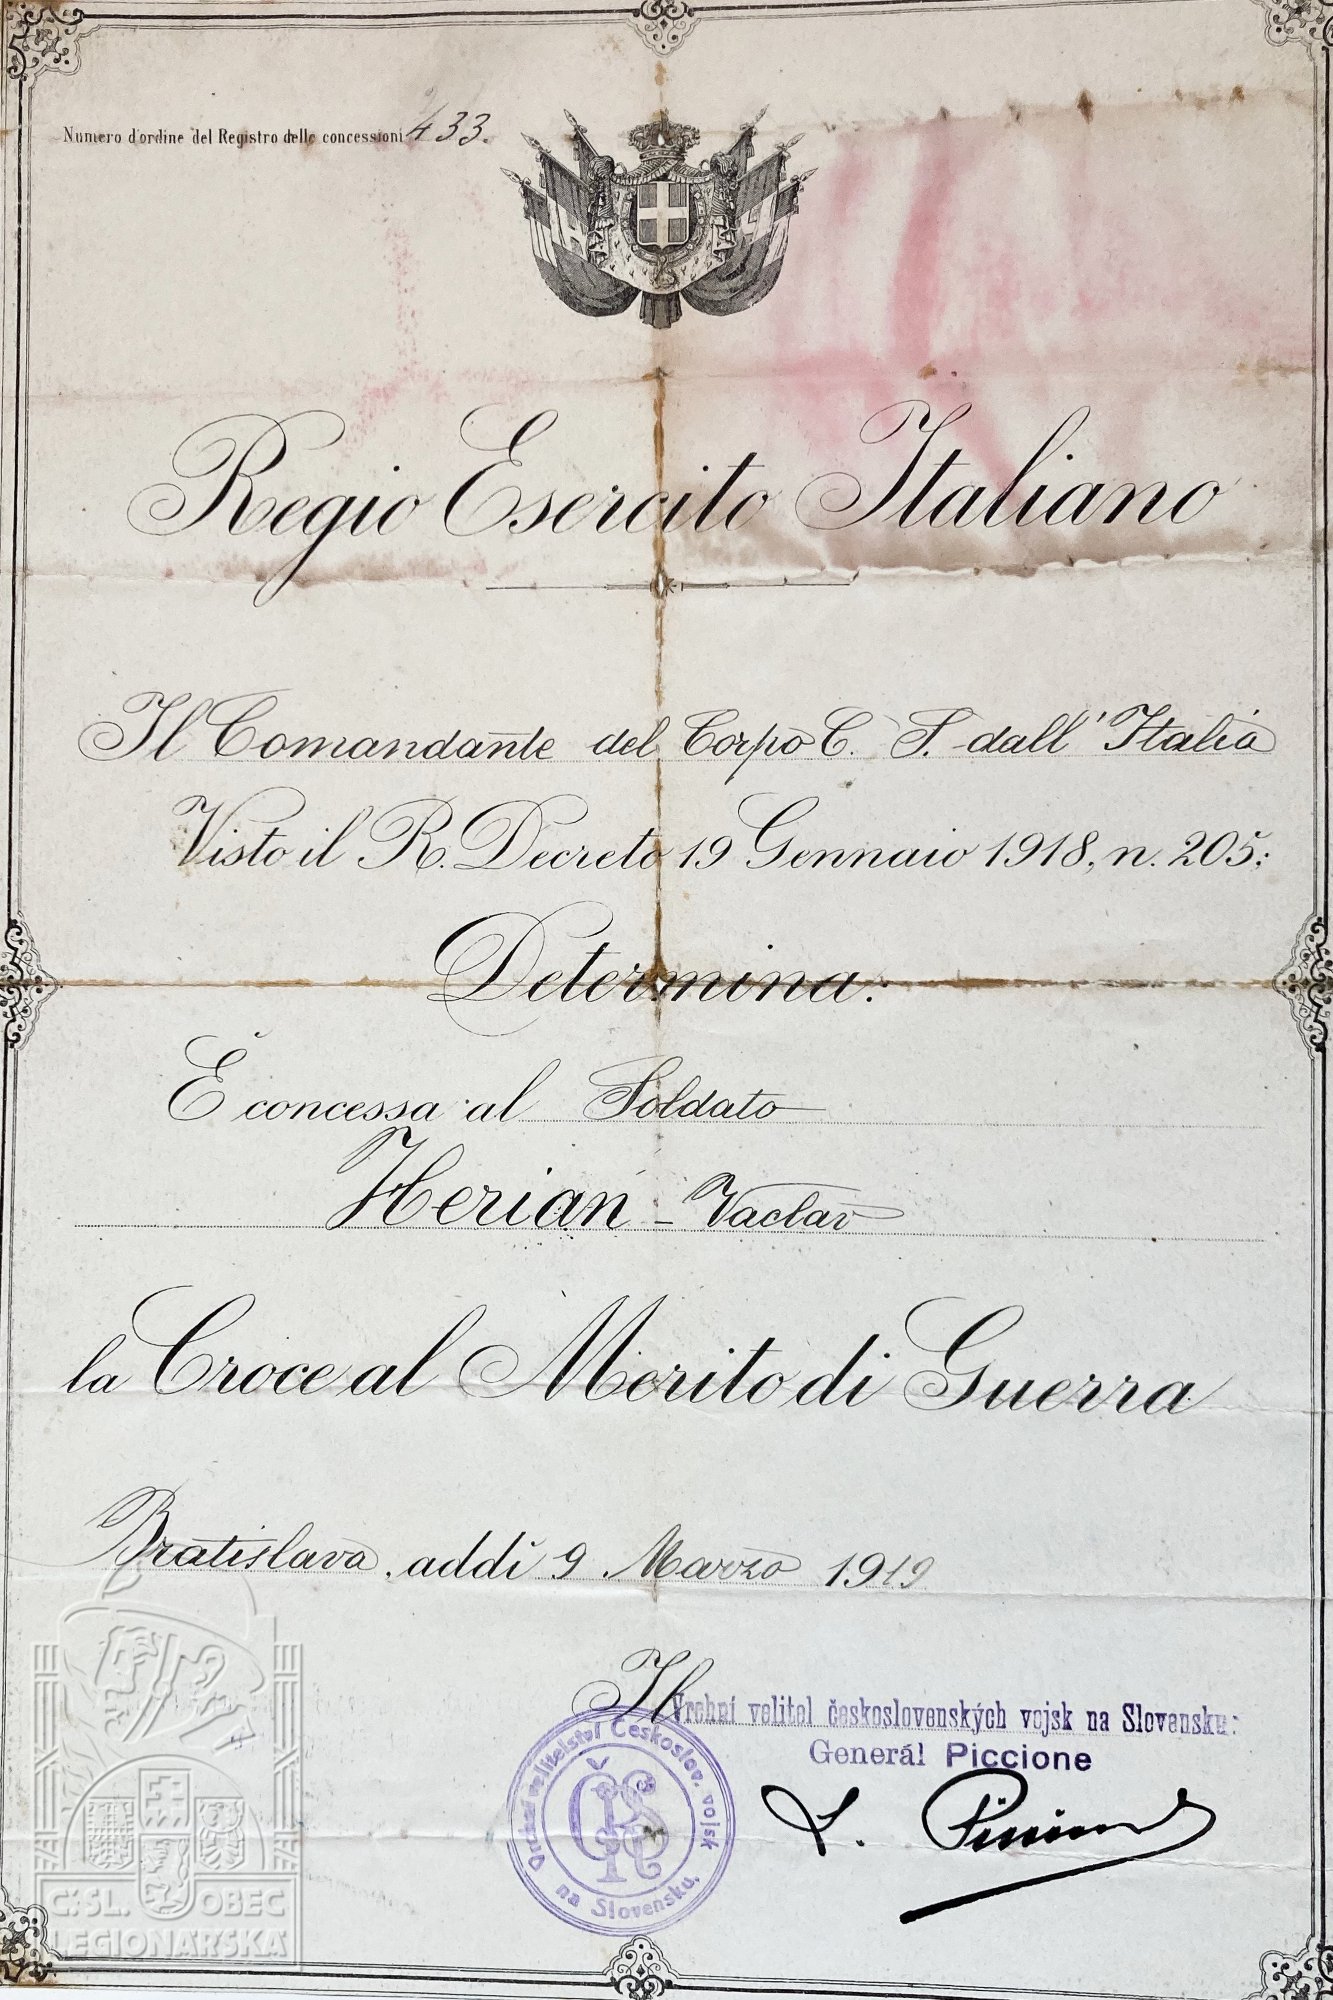 Numero d'ordine del Registro delle concessioni 433.
Regio Esercito Italiano
Il Comandante del Corpo C. S. dall' Italia
Visto il R. Decreto 19 Gennaio 1918, n. 205;
Determina:
È concessa al Soldato
Herian - Vaclav
la Croce al Merito di Guerra
Bratislava, addì 9 Marzo 1919
Il Vrchní velitel československých vojsk na Slovensku:
Generál Piccione
Vrchní velitelství Českoslov. vojsk
na Slovensku.
ČSL. OBEC
LEGIONÁŘSKÁ